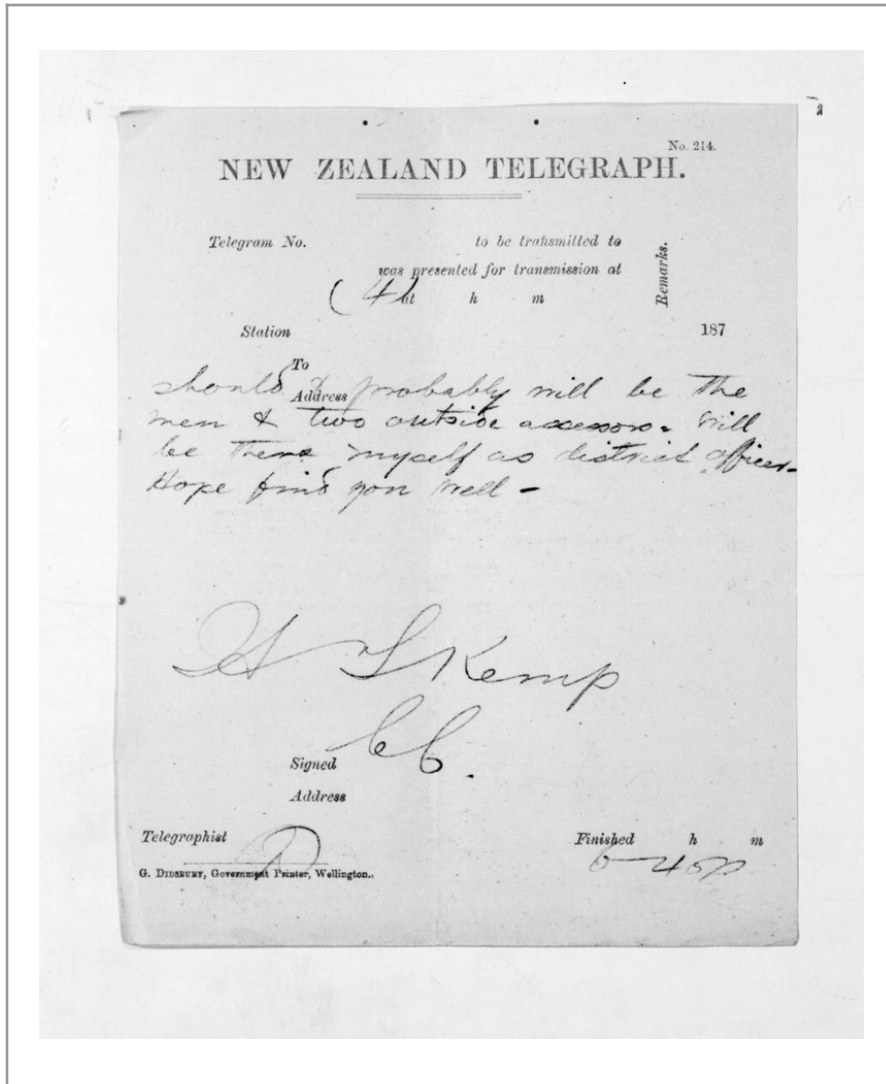 No. 214.
NEW ZEALAND TELEGRAPH.
Telegram No. to be transmitted to
was presented for transmission at
(4 at h m
Remarks.
Station 187
To
should & probably will be the
Address
men & two outside assessors. Will
be there myself as district officer-
Hope find you well -
H T Kemp
CC.
Signed
Address
Telegraphist Finished h m
6-40p
G. DIDSBURY, Government Printer, Wellington.